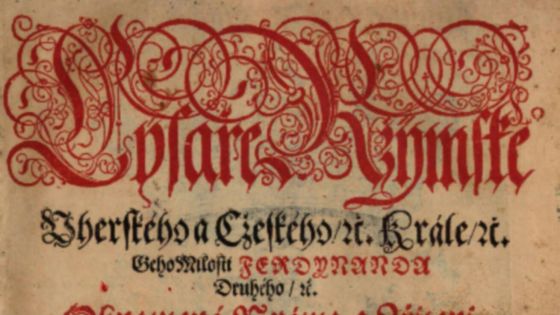 Cysaře Ržymſké
Vherſkého a Cžeſkého / ꝛc̃. Krále / ꝛc̃.
Geho Miloſti FERDYNANDA
Druhého / ꝛc̃.